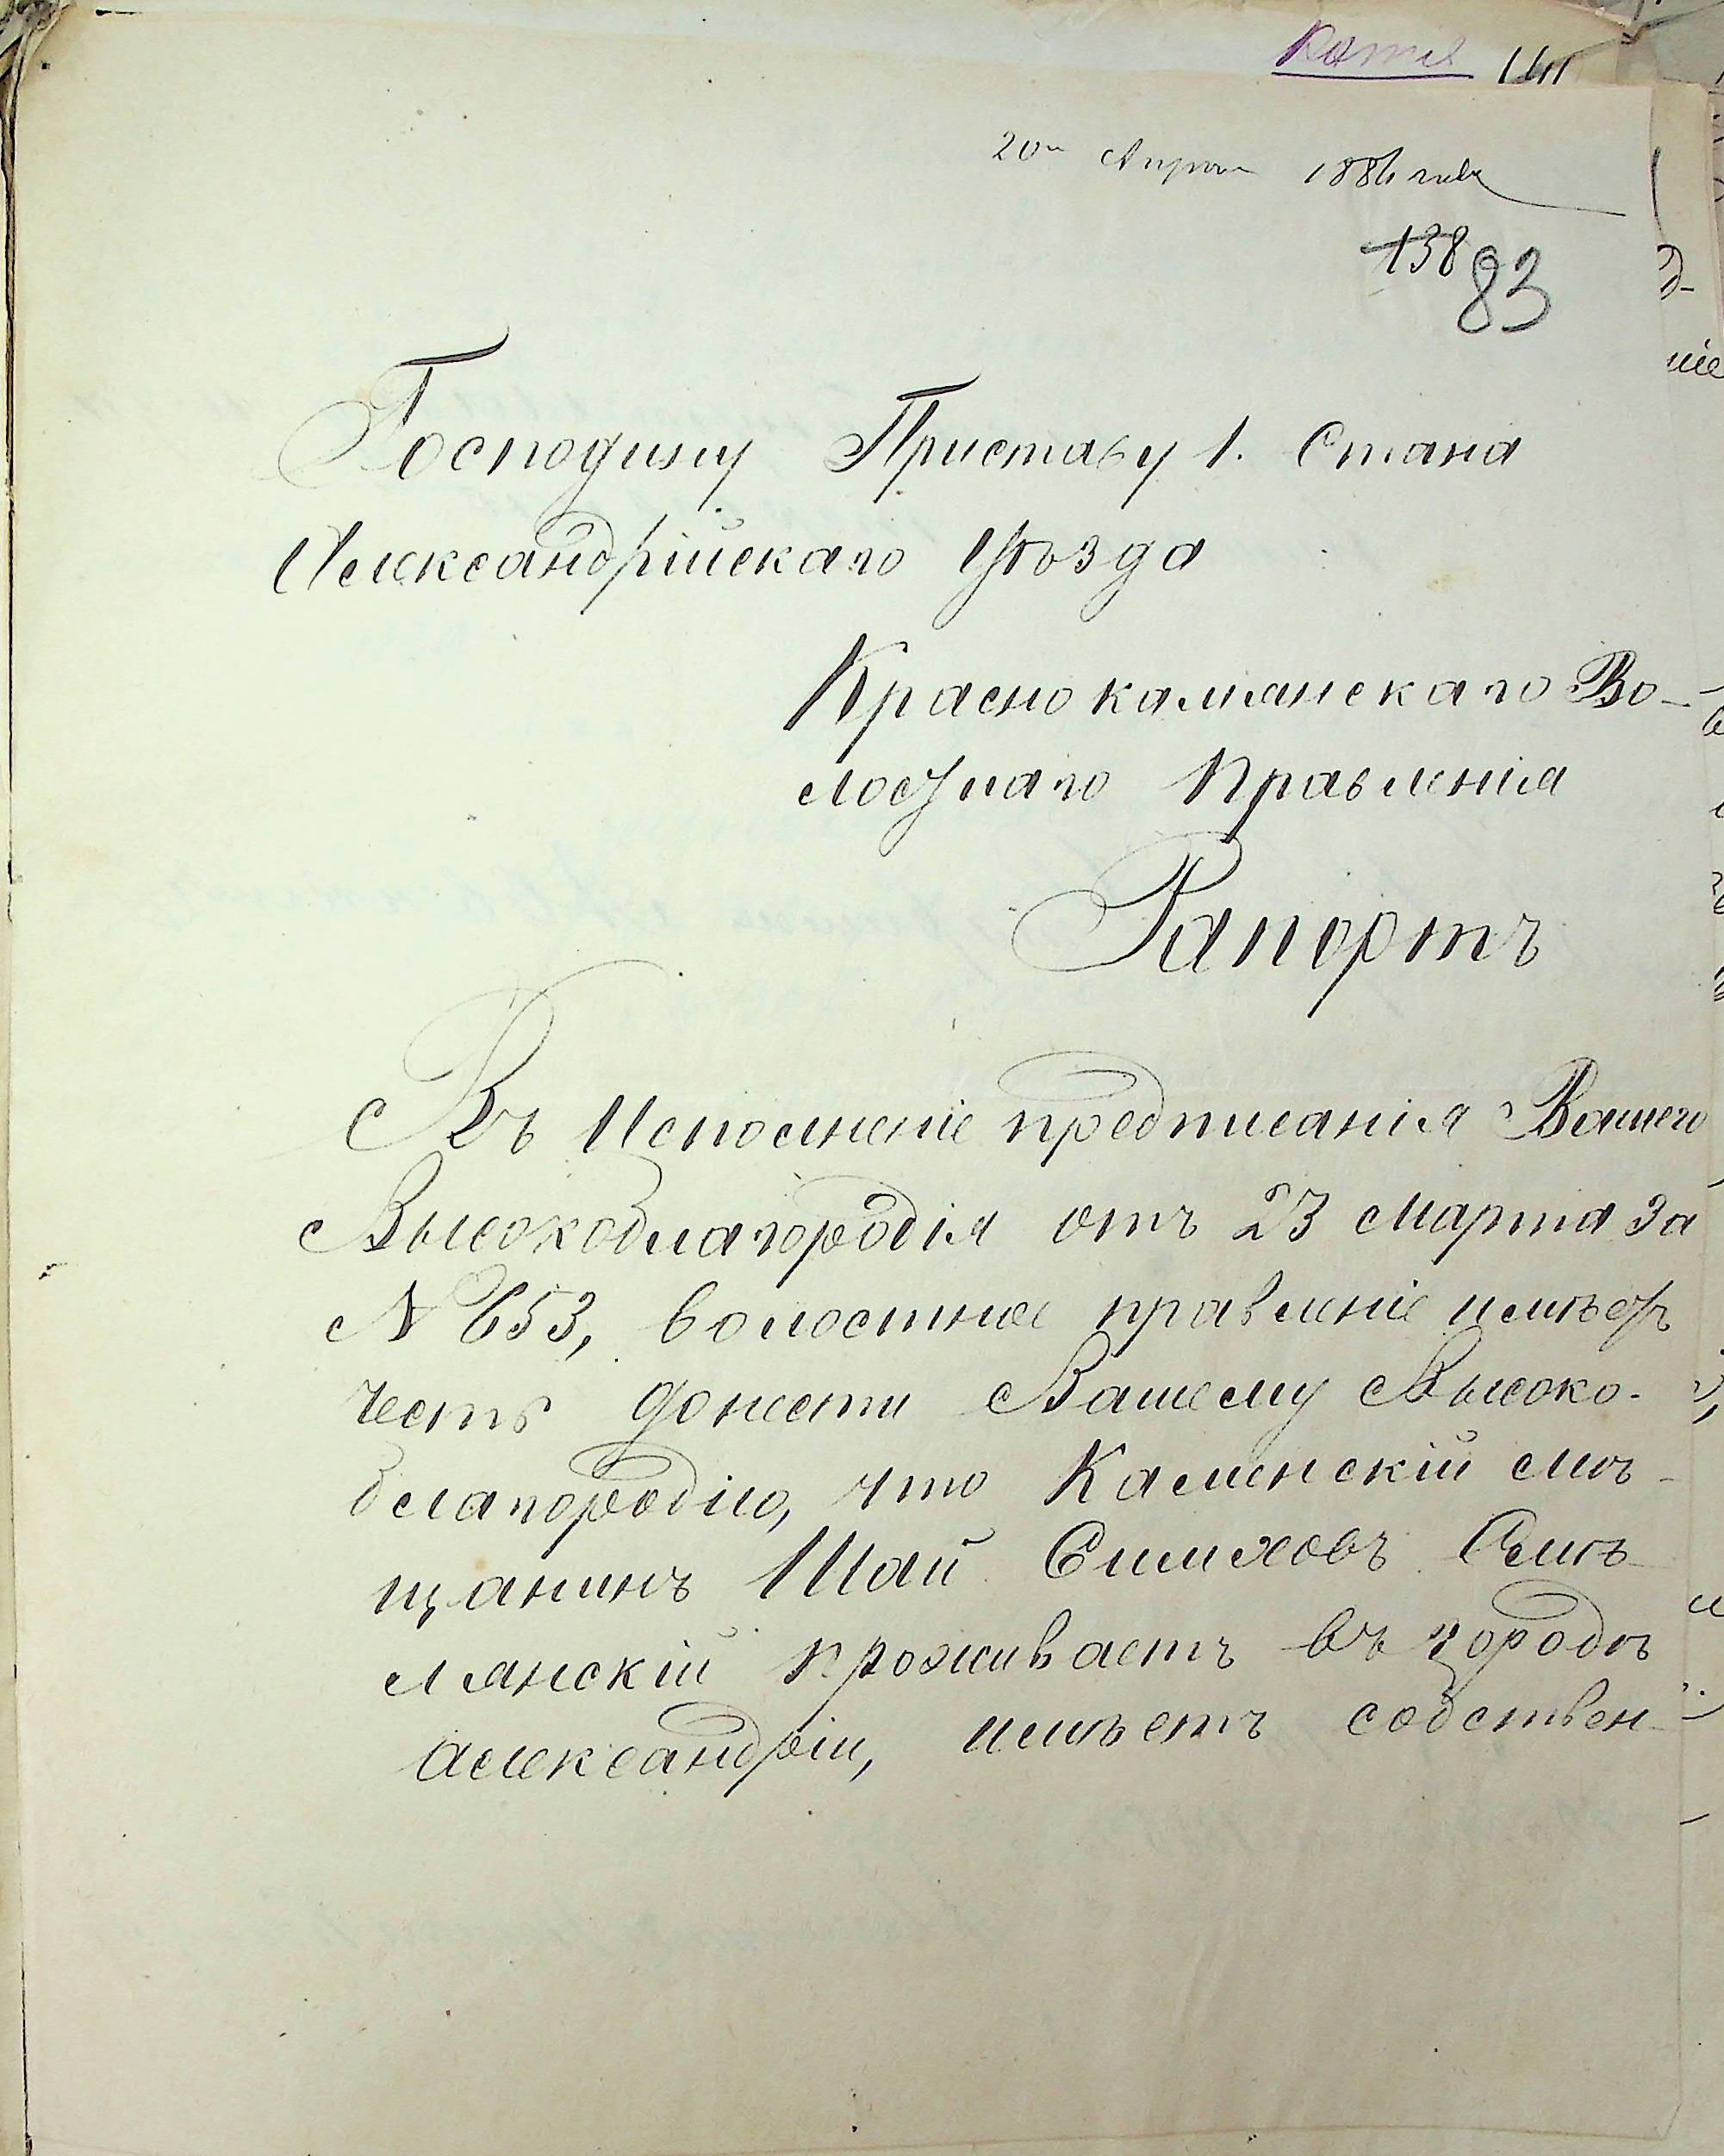 Копія 141
20го Апрѣля 1886 года
138 83
Господину Приставу 1. Стана
Александрійскаго Уѣзда
Краснокаменскаго Во-
лостнаго Правленія
Рапортъ
Въ Исполненіе предписанія Вашего
Высокоблагородія отъ 23 Марта За
№ 653, волостное правленіе имѣетъ
честь донести Вашему Высоко-
благородію, что Каменскій мѣ-
щанинъ Шай Симховъ Смѣ-
лянскій проживаетъ въ городѣ
Александріи, имѣетъ собствен-